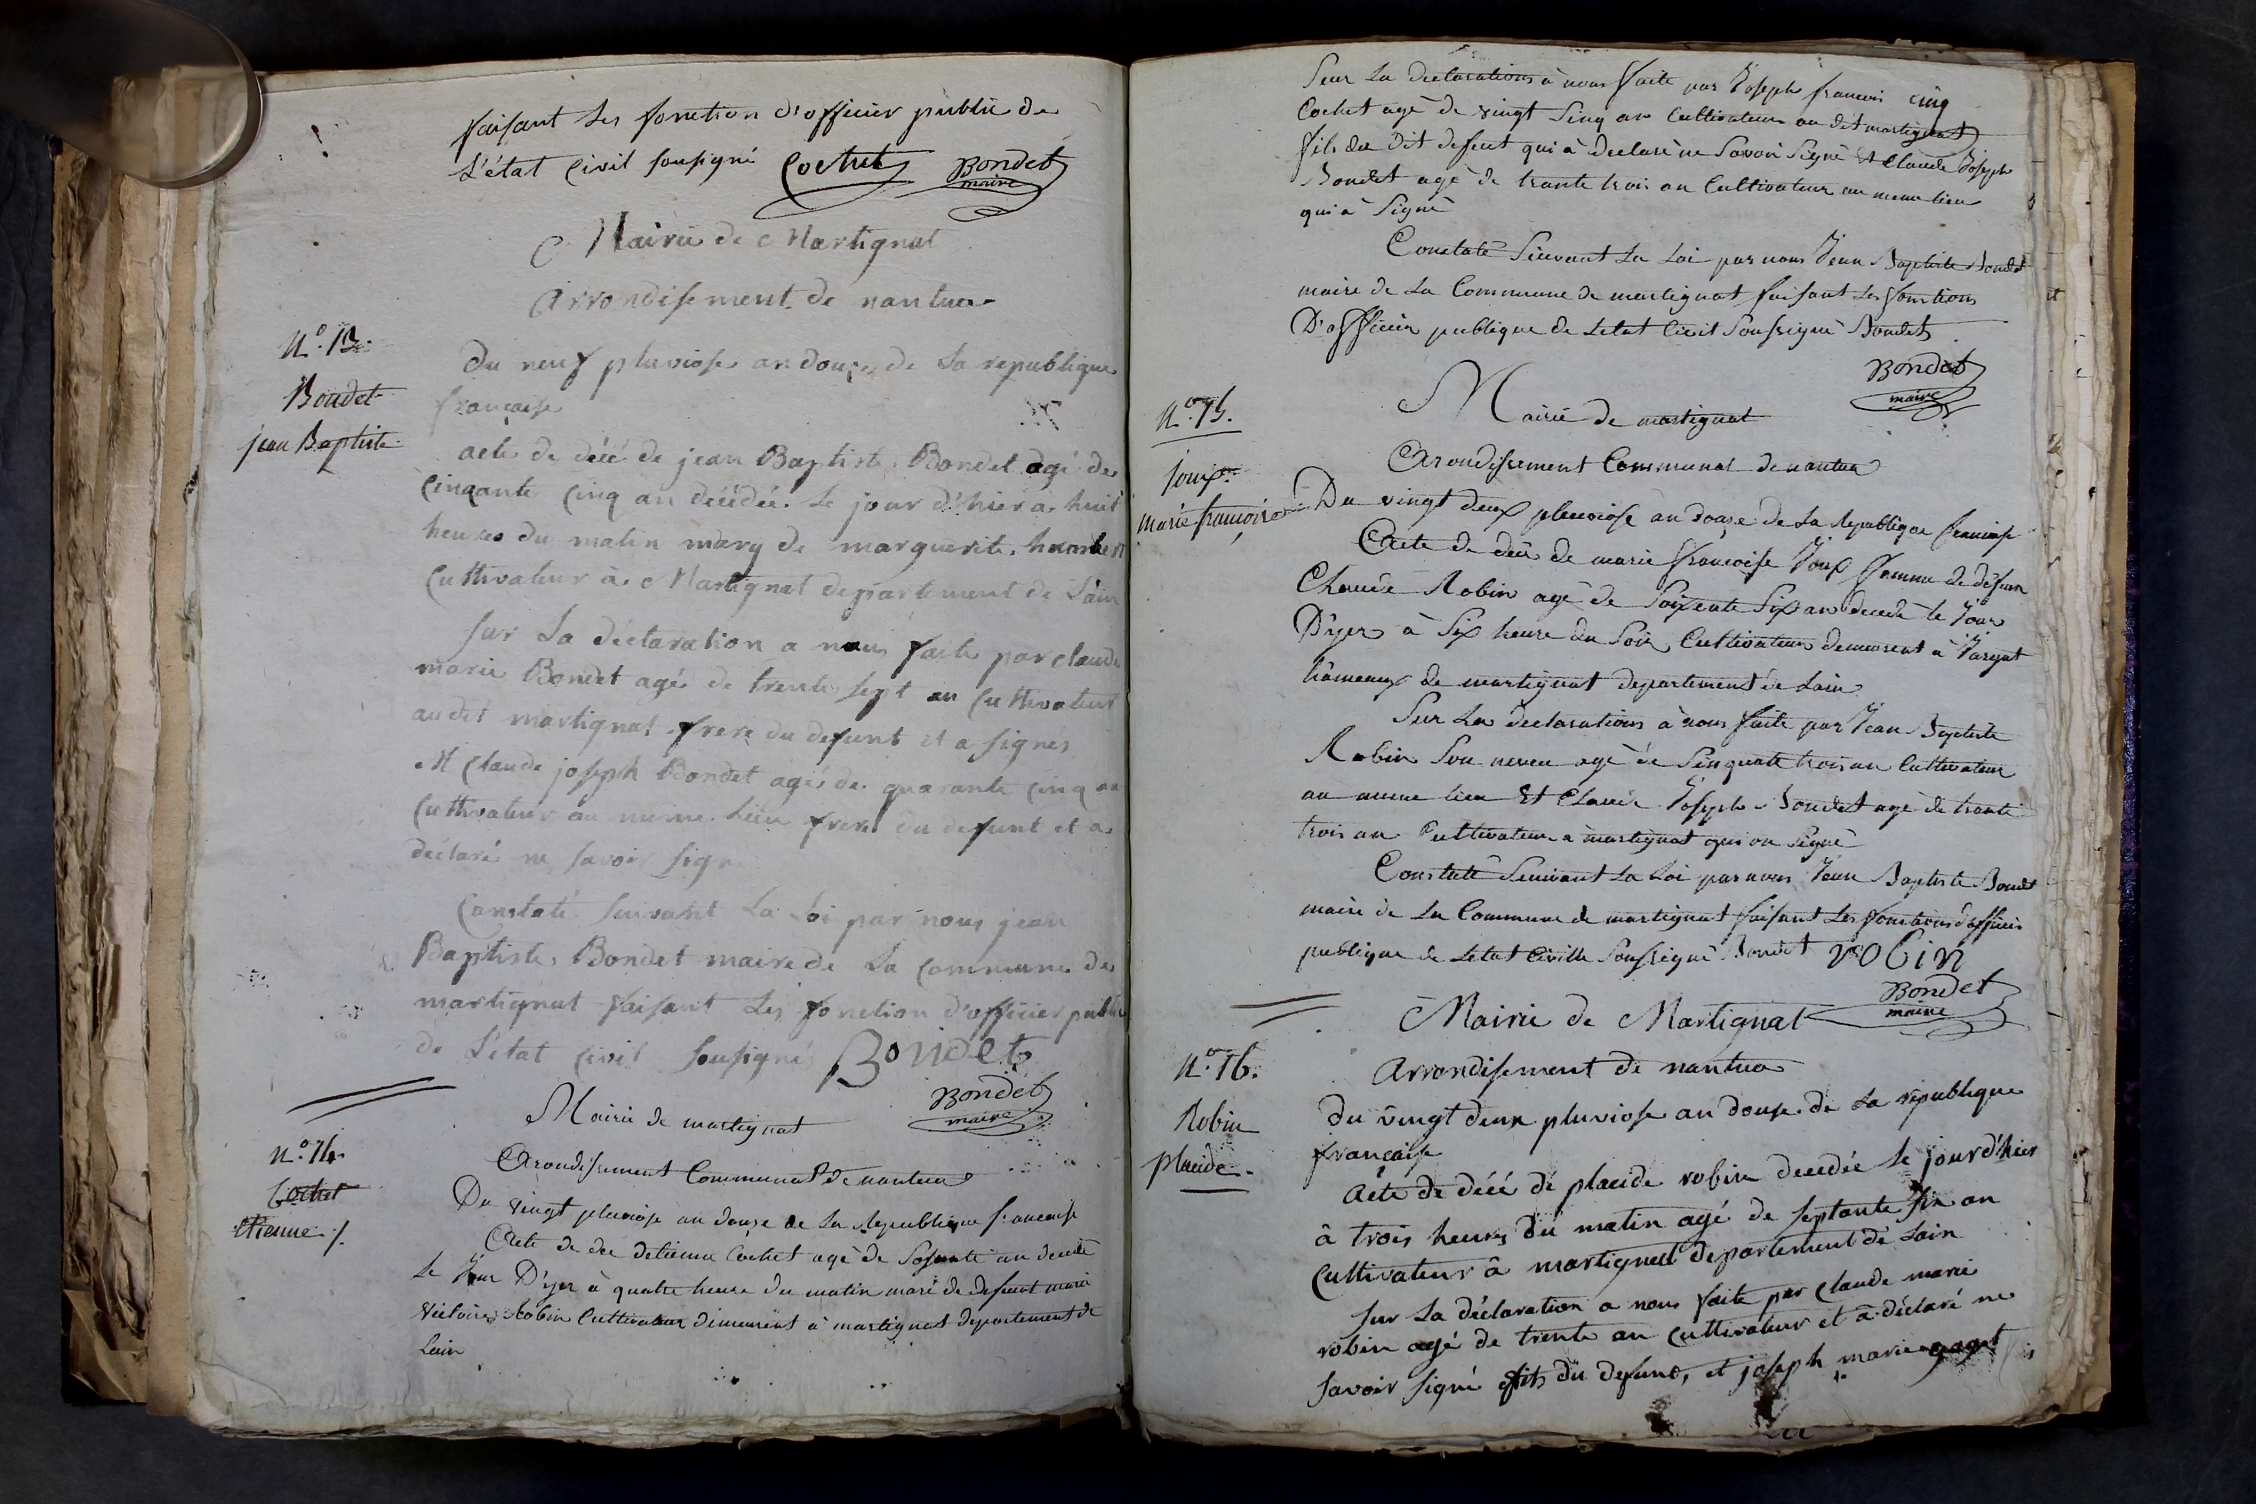 faisant les fonction d'officier public de
L'état Civil sousigné Cochet Bondet
maire
Mairie de Martignat
Arrondisement de nantua
N.o 13.
Bondet
jean Baptiste
du neuf pluviose an douze de la republique
française
acte de décé de jean Baptiste Bondet agé de
cinqante cinq an décédée le jour d'hier à huit
heures du matin mary de marguerite humbert
Cultivateur à Martignat departement de L'ain
sur La déclaration a nous faite par claude
marie Bondet agé de trente sept an Cultivateur
au dit martignat frere du defunt et a signes
Et Claude joseph Bondet agés de quarante cinq an
Cultivateur au meme Lieu frere du defunt et a
déclaré ne savoir signe
Constaté suivant La Loi par nous jean
Baptiste Bondet maire de La Commune de
martignat faisant Les fonction d'officier public
de L'état Civil sousigné Bondet
Bondet
maire
N.o 14.
Cochet
etienne
Mairie de martignat
Arondisement Communal de nantua
Du vingt pluviose an douze de La Republique francaise
Acte de dec detienne Cochet agé de Sosante an decedé
Le Jour D'yer à quatre heure du matin mari de defunt marie
Victoire Robin Cultivateur dimeurent à martignat departement de
Lain
Sur La declarations à nous faite par Joseph francois cinq
Cochet agé de vingt Sinq an Cultivateur au dit martignat
fils du Dit defunt qui à declaré ne Savoir Signé Et Claude Joseph
Bondet agé de trante trois an Cultivateur au meme lieu
qui à Signé
Constaté Suivant La Loi par nous Jean Baptiste Bondet
maire de La Commune de martignat faisant Les fonctions
D'officier publique de Letat Civil Soussigné Bondet
Bondet
maire
N.o 15.
Joux
marie françoise
Mairie de martignat
Arondissement Communal de nantua
Du vingt deux pluviose an douze de La Republique francaise
Acte de décé de marie francoise Joux famme de défun
Claude Robin agé de Soixente Six an decedé le Jour
D'yer à Six heure du Soir, Cultivateur demeurent à Vargut
hameaux de martignat departement de Lain
Sur La declarations à nous faite par Jean Baptiste
Robin Son neveu agé de Sinquate trois an Cultivateur
au meme lieu Et Claude Joseph Bondet agé de trante
trois an Cultivateur a martignat qui on Signé
Constaté Suivant La Loi par nous Jean Baptiste Bondet
maire de La Commune de martignat faisant Les fonctions d'officier
publique de Letat Civille Soussigné Bondet robin
Bondet
maire
Mairie de Martignat
N.o 16.
Robin
placide
Arrondisement de nantua
du vingt deux pluviose an douse de La republique
française
Acte de décé de placide robin decedée le jour d'hier
à trois heures du matin agé de septante six an
Cultivateur à martignat departement de Lain
sur La déclaration a nous faite par claude marie
robin agé de trente an Cultivateur et a déclaré ne
savoir signé fils du defunt, et joseph marie gaget